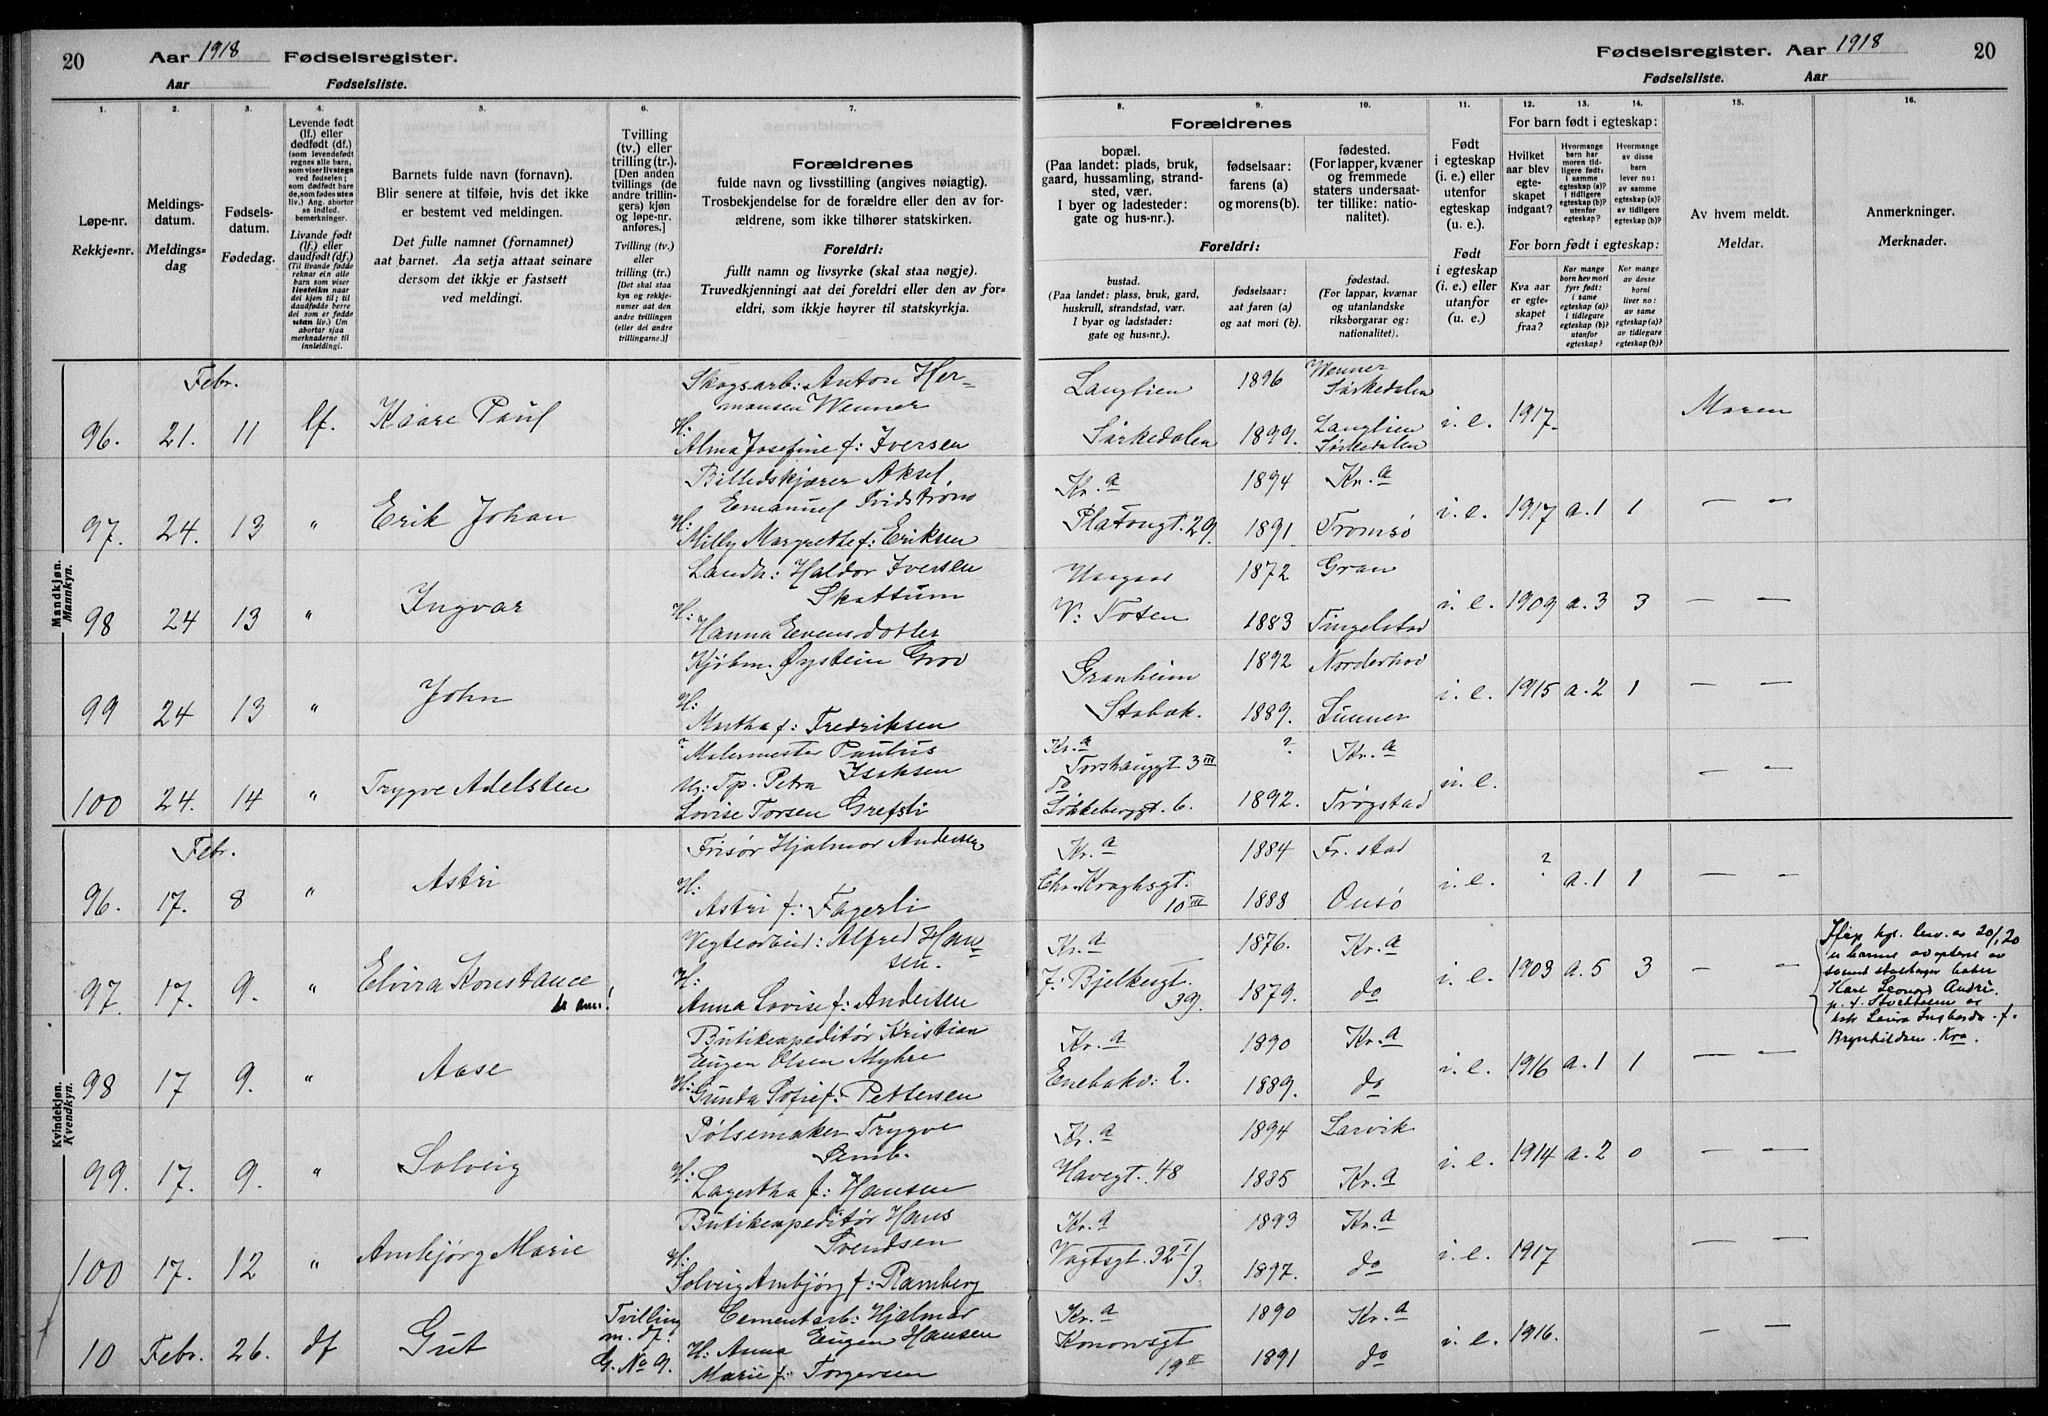 20
Aar 1918 Fødselsregister.
Aar Fødselsliste.
Fødselsregister. Aar 1918
20
Fødselsliste. Aar
1. 2. 3. 4. 5. 6. 7.
8. 9. 10. 11. 12. 13. 14. 15. 16.
Løpe-nr.
Rekkje-nr.
Meldings-
datum.
Meldings-
dag
Fødsels-
datum.
Fødedag.
Levende født
(lf.) eller
dødfødt (df.)
(som levendefødt
regnes alle barn,
som viser livstegn
ved fødselen;
som dødfødt bare
de, som fødes uten
liv.) Ang. aborter
se indled.
bemerkninger.
Livande født
(lf.) eller
daudfødt (df.)
(Til livande fødde
reknar ein alle
barn som viser
livsteikn naar
dei kjem til; til
daudfødde berre
dei som er fødde
utan liv.) Um
abortar sjaa
merknaderne til
innleidingi.
Barnets fulde navn (fornavn).
Blir senere at tilføie, hvis det ikke
er bestemt ved meldingen.
Det fulle namnet (fornamnet)
aat barnet. Aa setja attaat seinare
dersom det ikkje er fastsett
ved meldingi.
Tvilling
(tv.) eller
trilling (tr.).
[Den anden
tvillings (de
andre trillin-
gers) kjøn
og løpe-nr.
anføres.]
Tvilling (tv.)
eller
trilling (tr.)
[Det skal staa
kyn og rekkje-
numer aat den
andre tvillingen
(eller dei andre
trillingarne.)]
Forældrenes
fulde navn og livsstilling (angives nøiagtig).
Trosbekjendelse for de forældre eller den av for-
ældrene, som ikke tilhører statskirken.
Foreldri:
fullt namn og livsyrke (skal staa nøgje).
Truvedkjenningi aat dei foreldri eller den av for-
eldri, som ikkje høyrer til statskyrkja.
Forældrenes
bopæl.
(Paa landet: plads, bruk,
gaard, hussamling, strand-
sted, vær.
I byer og ladesteder:
gate og hus-nr.).
fødselsaar:
farens (a)
og morens (b).
fødested.
(For lapper, kvæner
og fremmede
staters undersaat-
ter tillike: natio-
nalitet).
Foreldri:
bustad.
(Paa landet: plass, bruk, gard,
huskrull, strandstad, vær.
I byar og ladstader:
gate og hus-nr.).
fødselsaar:
aat faren (a)
og aat mori (b).
fødestad.
(For lappar, kvænar
og utanlandske
riksborgarar og:
nationalitet.)
Født
i egteskap
(i. e.) eller
utenfor
egteskap
(u. e.).
Født
i egteskap
(i. e.) eller
utanfor
(u. e.).
For barn født i egteskap:
Hvilket
aar blev
egte-
skapet
indgaat?
Hvormange
barn har
moren tid-
ligere født:
i samme
egteskap (a)?
i tidligere
egteskap (b)?
utenfor
egteskap?
Hvormange
av disse
barn
lever nu:
av samme
egteskap (a)?
av tidligere
egteskap (b)?
For born født i egteskap:
Kva aar
er egte-
skapet
fraa?
Kor mange
born hev mori
fyrr født:
i same
egteskap (a)?
i tidlegare
egteskap (b)?
utanfor
egteskap?
Kor mange
av desse
borni
liver no:
av same
egteskap (a)?
av tidlegare
egteskap (b)?
Av hvem meldt.
Meldar.
Anmerkninger.
Merknader.
Mandkjøn.
Mannkyn.
Febr.
96. 21. 11 lf. Kaare Paul
Skogsarb: Anton Her-
mansen Wenner
H:
Alma Josefine f: Iversen
Langlien 1896 Wenner
Sørkedalen
Sørkedalen 1899. Langlien
Sørkedalen
i. e. 1917. Moren
97. 24. 13 " Erik Johan
Billedskjærer Aksel
Emanuel Fridstrøm
H:
Milly Margrethe f: Eriksen
Kr.a 1894 Kr.a
Platougt. 29. 1891 Tromsø
i. e. 1917 a. 1 1 — —
98 24 13 " Ingvar
Landh: Haldor Iversen
Skattum
H:
Hanna Evensdotter
1872 Gran
V: Toten 1883 Tingelstad
i. e. 1909 a. 3 3 — —
99 24 13 " John
Kjøbm. Øystein Grov
H:
Martha f: Fredriksen
Granheim 1892 Norderhov
Stabæk. 1889. Lunner
i. e. 1915 a. 2 1 — —
100 24. 14 " Trygve Adelsten
? Malermester Paulus
Isaksen
Ug: Tp. Petra
Lovise Torsen Grefsli
Kr.a ? Kr.a
Torshauggt 3 III
Do
Løkkeberggt. 6. 1892. Trøgstad
u. e. — —
Kvindekjøn.
Kvendkyn.
Febr.
96. 17. 8 " Astri
Frisør Hjalmar Andersen
H:
Astri f: Fagerli
Kr.a 1884 Fr. stad
Chr. Kroghsgt.
10 III 1888 Onsø
i. e. ? a. 1 1 — —
97. 17. 9. " Elvira Konstance
Vegtearbeid: Alfred Han-
sen.
H:
Anna Lovise f: Andersen
Kr.a 1876. Kr.a
J: Bjelkesgt.
39. 1879. do
i. e. 1903 a. 5 3 — —
Ifølge kgl. besv. av 20/1 20
er barnet adoptert av
Karl Leonard André
p. t. Stockholm og
Laura Ingborda f.
Brynhildsen. Kra
98 17 9. " Aase
Butikexpeditør Kristian
Eugen Olsen Myhre
H:
Gunda Sofie f. Pettersen
Kr.a 1890 Kr.a
Enebakv: 2. 1889. do
i. e. 1916 a. 1 1 — —
99. 17. 9. " Solveig
Pølsemaker Trygve
Semb.
H:
Lagertha f: Hansen
Kr.a 1894 Larvik
Havegt. 48 1885 Kr.a
i. e. 1914 a. 2 0 — —
100 17. 12 " Arnbjørg Marie
Butikexpeditør Hans
Svendsen
H:
Solveig Arnbjørg f: Ramberg
Kr.a 1893 Kr.a
Vogtsgt. 32 I/3 1897. do
i. e. 1917 — —
10 Febr. 26. df Gut
Tvilling
m. df.
G. No 9.
Cementarb: Hjalmar
Eugen Hansen
H: Anna
Marie f: Torgersen
Kr.a 1890 Kr.a
Konowsgt
19 II 1891 do
i. e. 1916. — —